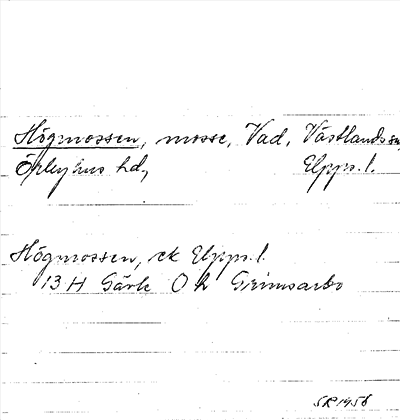 Högmossen, mosse, Vad, Västlands sn,
Örbyhus hd, Upps. l.
Högmossen, ek Upps. l.
13 H Gävle O h Grimsarbo
SR 1956